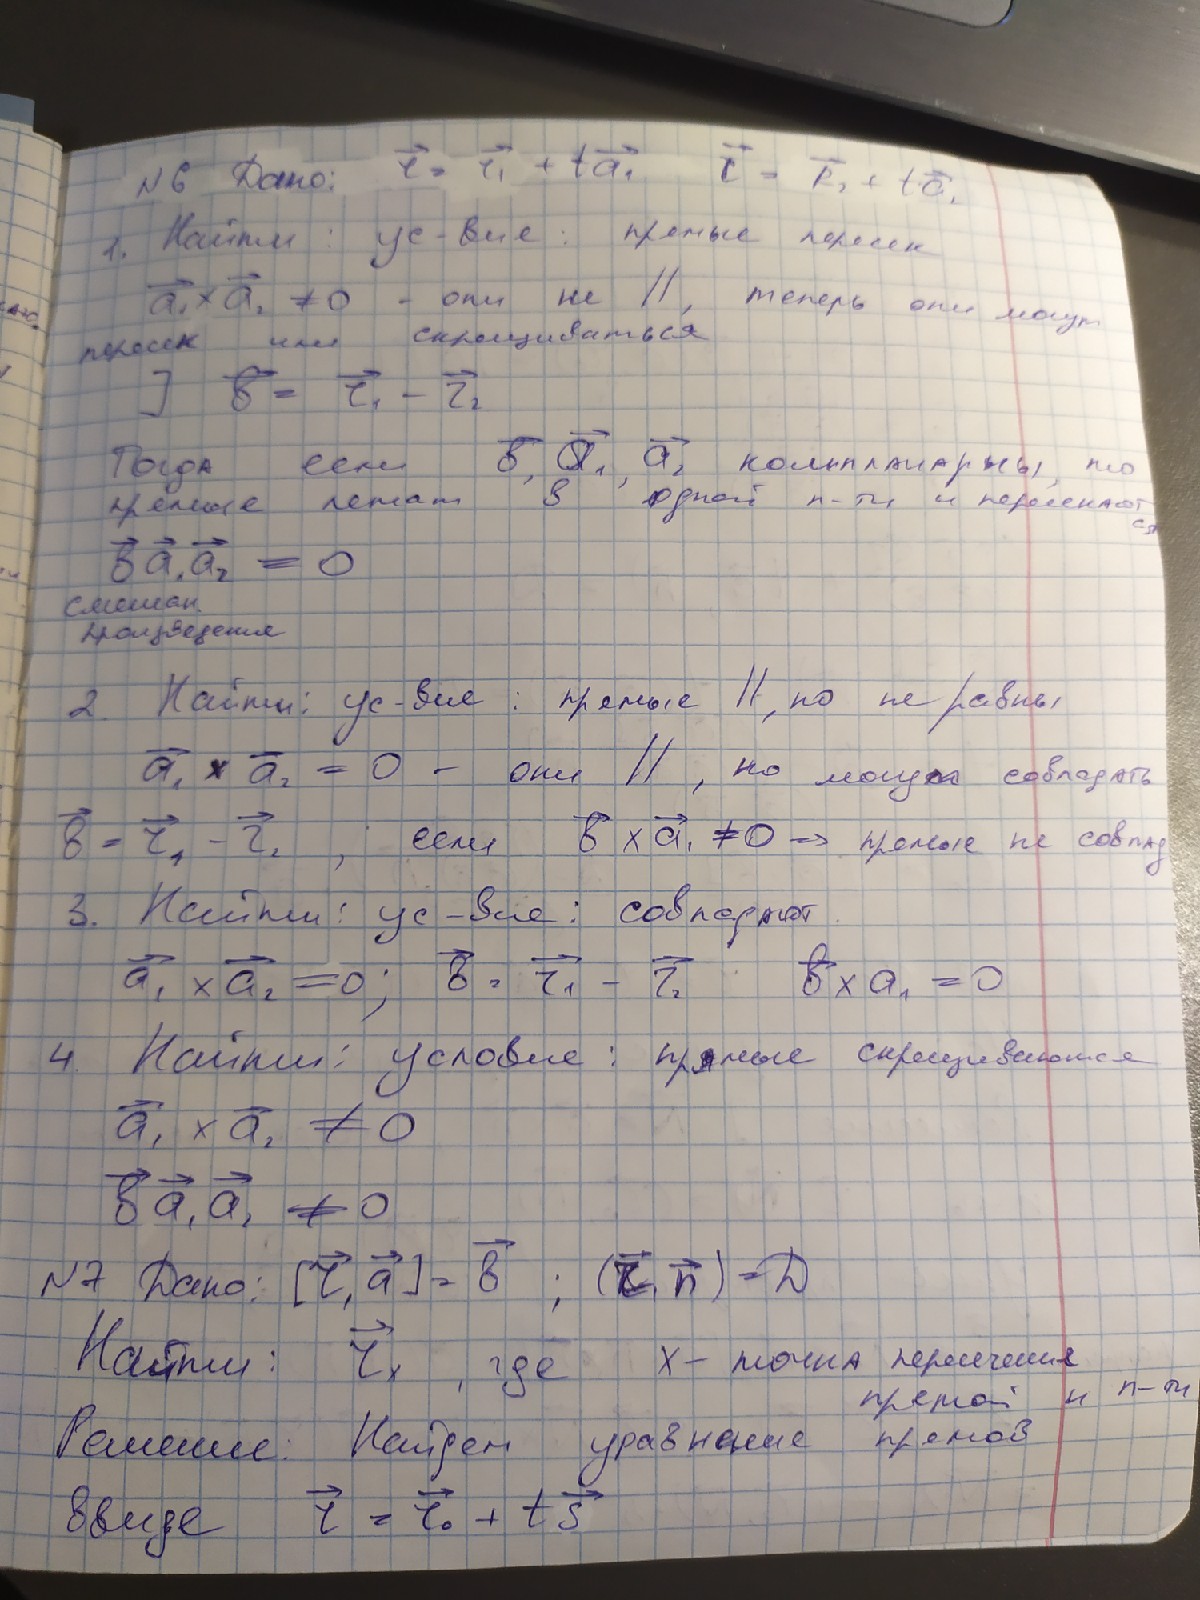 №6 Дано: r⃗ = r⃗₁ + ta⃗₁ r⃗ = r⃗₂ + ta⃗₂
1. Найти: ус-вие: прямые пересек
a⃗₁ × a⃗₂ ≠ 0 - они не ||, теперь они могут
пересек или скрещиваться
] b⃗ = r⃗₁ - r⃗₂
Тогда если b⃗, a⃗₁, a⃗₂ компланарны, то
прямые лежат в одной п-ти и пересекают
ся
b⃗ a⃗₁ a⃗₂ = 0
смешан.
произведение
2. Найти: ус-вие: прямые ||, но не равны
a⃗₁ × a⃗₂ = 0 - они ||, но могут совпадать
b⃗ = r⃗₁ - r⃗₂ ; если b⃗ × a⃗₁ ≠ 0 => прямые не совпад
3. Найти: ус-вие: совпадают
a⃗₁ × a⃗₂ = 0; b⃗ = r⃗₁ - r⃗₂ b⃗ × a₁ = 0
4. Найти: условие: прямые скрещиваются
a⃗₁ × a⃗₂ ≠ 0
b⃗ a⃗₁ a⃗₂ ≠ 0
№7 Дано: [r⃗, a⃗] = b⃗ ; (r⃗, n⃗) = D
Найти: r⃗ₓ , где x - точка пересечения
прямой и п-ти
Решение: Найдем уравнение прямой
ввиде r⃗ = r⃗₀ + ts⃗